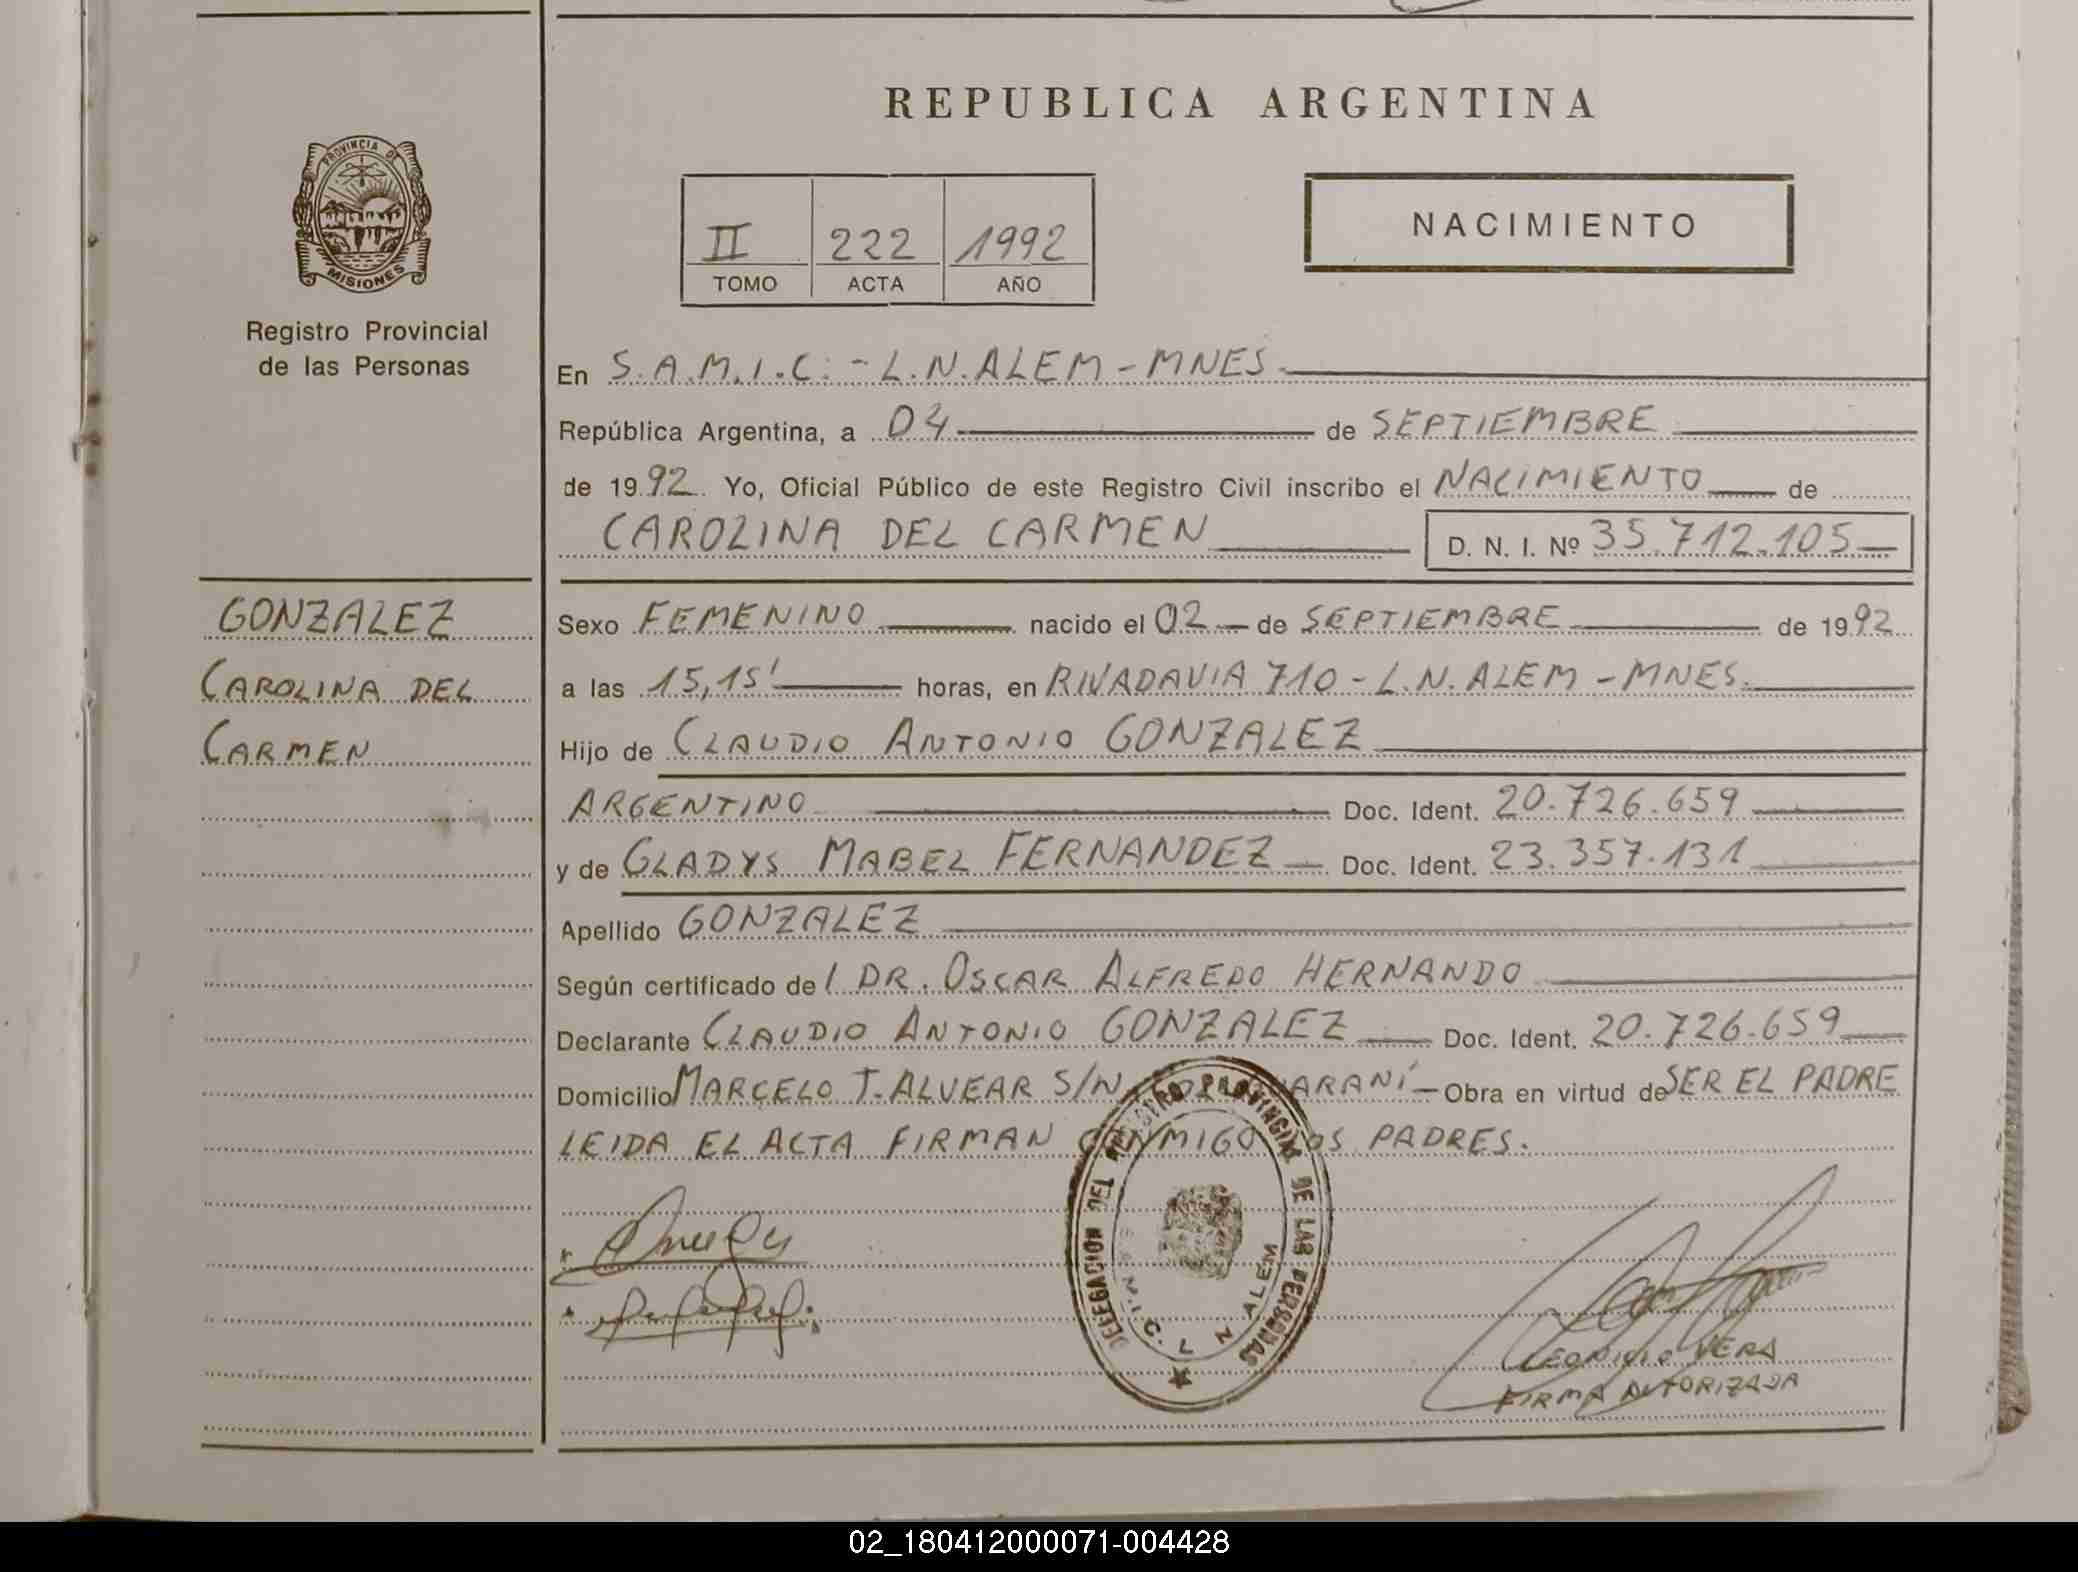 REPUBLICA ARGENTINA
PROVINCIA DE
MISIONES
Registro Provincial
de las Personas
II 222 1992
TOMO ACTA AÑO
NACIMIENTO
En S.A.M.I.C. - L.N. ALEM - MNES.
República Argentina, a 04 de SEPTIEMBRE
de 1992. Yo, Oficial Público de este Registro Civil inscribo el NACIMIENTO de
CAROLINA DEL CARMEN D. N. I. Nº 35.712.105
GONZALEZ
CAROLINA DEL
CARMEN
Sexo FEMENINO nacido el 02 de SEPTIEMBRE de 1992
a las 15,15' horas, en RIVADAVIA 710 - L.N. ALEM - MNES.
Hijo de CLAUDIO ANTONIO GONZALEZ
ARGENTINO Doc. Ident. 20.726.659
y de GLADYS MABEL FERNANDEZ Doc. Ident. 23.357.131
Apellido GONZALEZ
Según certificado del DR. OSCAR ALFREDO HERNANDO
Declarante CLAUDIO ANTONIO GONZALEZ Doc. Ident. 20.726.659
Domicilio MARCELO T. ALVEAR S/N Obra en virtud de SER EL PADRE
LEIDA EL ACTA FIRMAN CONMIGO LOS PADRES.
DELEGACION DEL REGISTRO PROVINCIAL DE LAS PERSONAS
S.A.M.I.C. L N ALEM
VERA
FIRMA AUTORIZADA
02_180412000071-004428